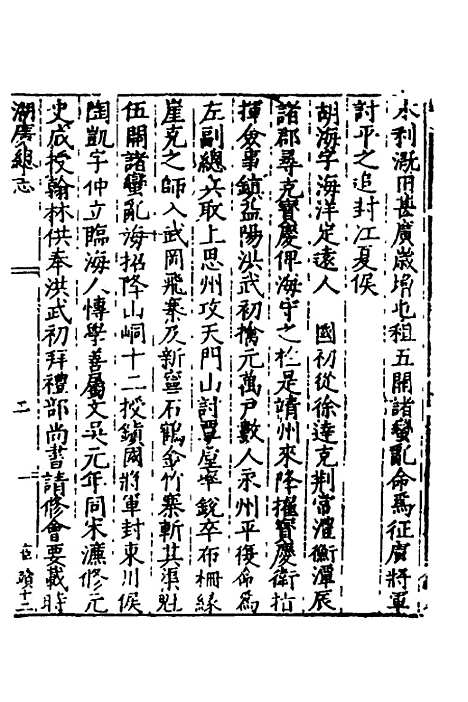 水利溉田甚廣歲增屯租五開諸蠻亂命爲征虜將軍
討平之追封江夏侯
胡海字海洋定遠人　國初從徐達克荆常澧衡潭辰
諸郡尋克寶慶俾海守之於是靖州來降擢寶慶衛指
揮僉事鎮益陽洪武初擒元萬戶數人永州平復命爲
左副總兵取上思州攻天門山討覃垕率銳卒布柵緣
崖克之師入武岡飛寨及新寧石鶴金竹寨斬其渠魁
五開諸蠻亂海招降山峒十二授鎮國將軍封東川侯
陶凱字仲立臨海人博學善屬文吳元年同宋濂修元
史成授翰林供奉洪武初拜禮部尚書請修會要載時
湖廣總志
二